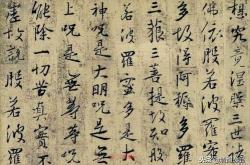 想究竟涅槃三世
佛依般若波羅蜜
多故得阿耨多
三藐三菩提故知般
若波羅蜜多是大
神呪是大明呪是无
上呪是無等等呪
能除一切苦真實不
虛故說般若波羅